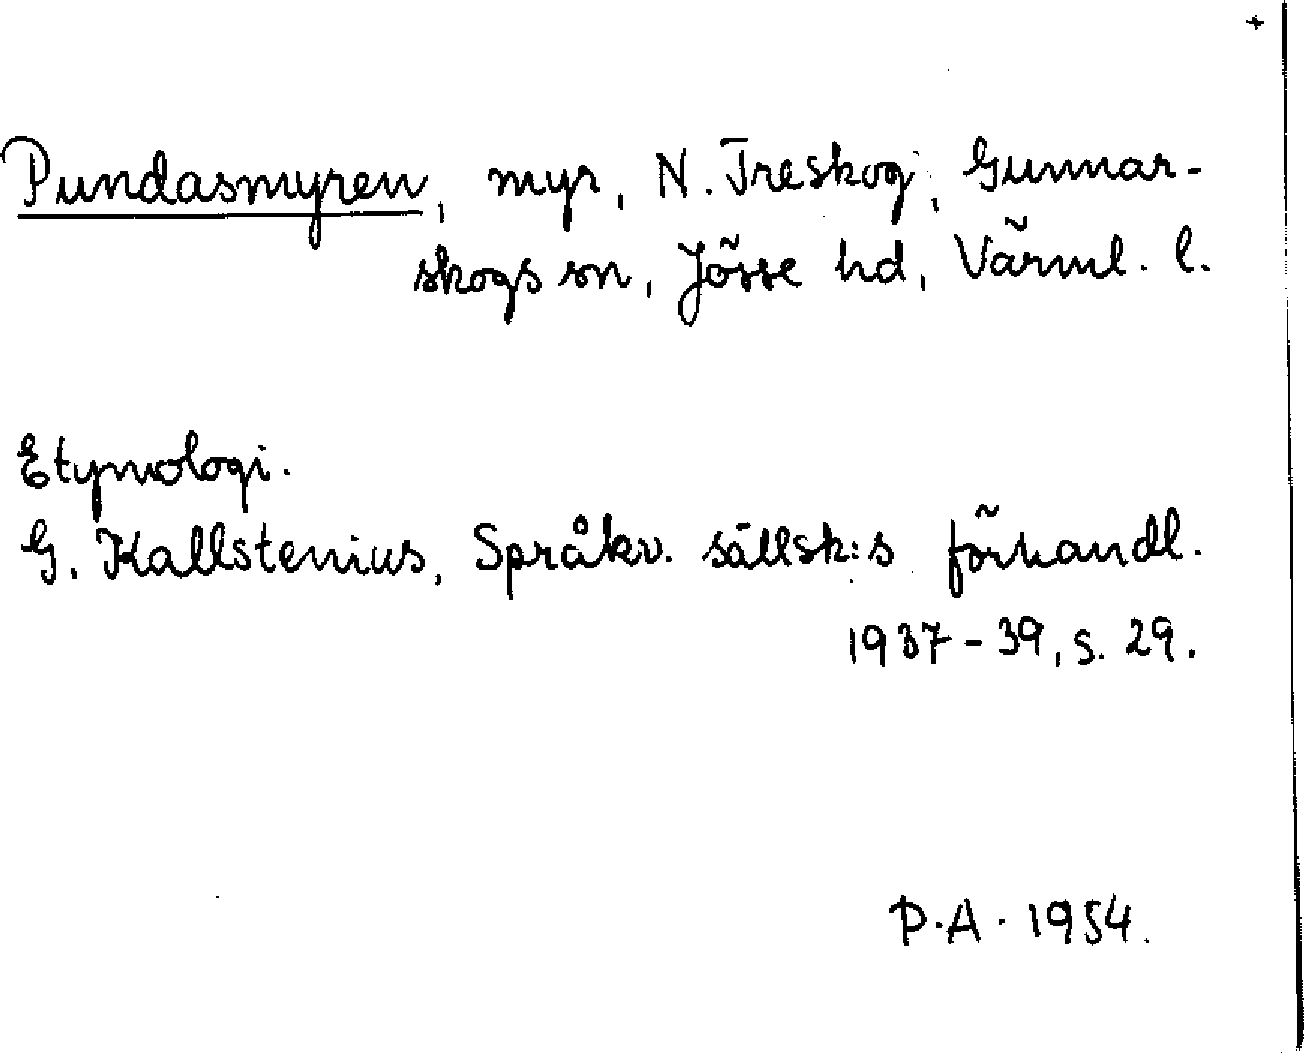 +
Pundasmyren, myr, N. Treskog, Gunnar-
skogs sn, Jösse hd, Värml. l.
Etymologi.
G. Kallstenius, Språkv. sällsk:s förhandl.
1937-39, s. 29.
P.A. 1954.